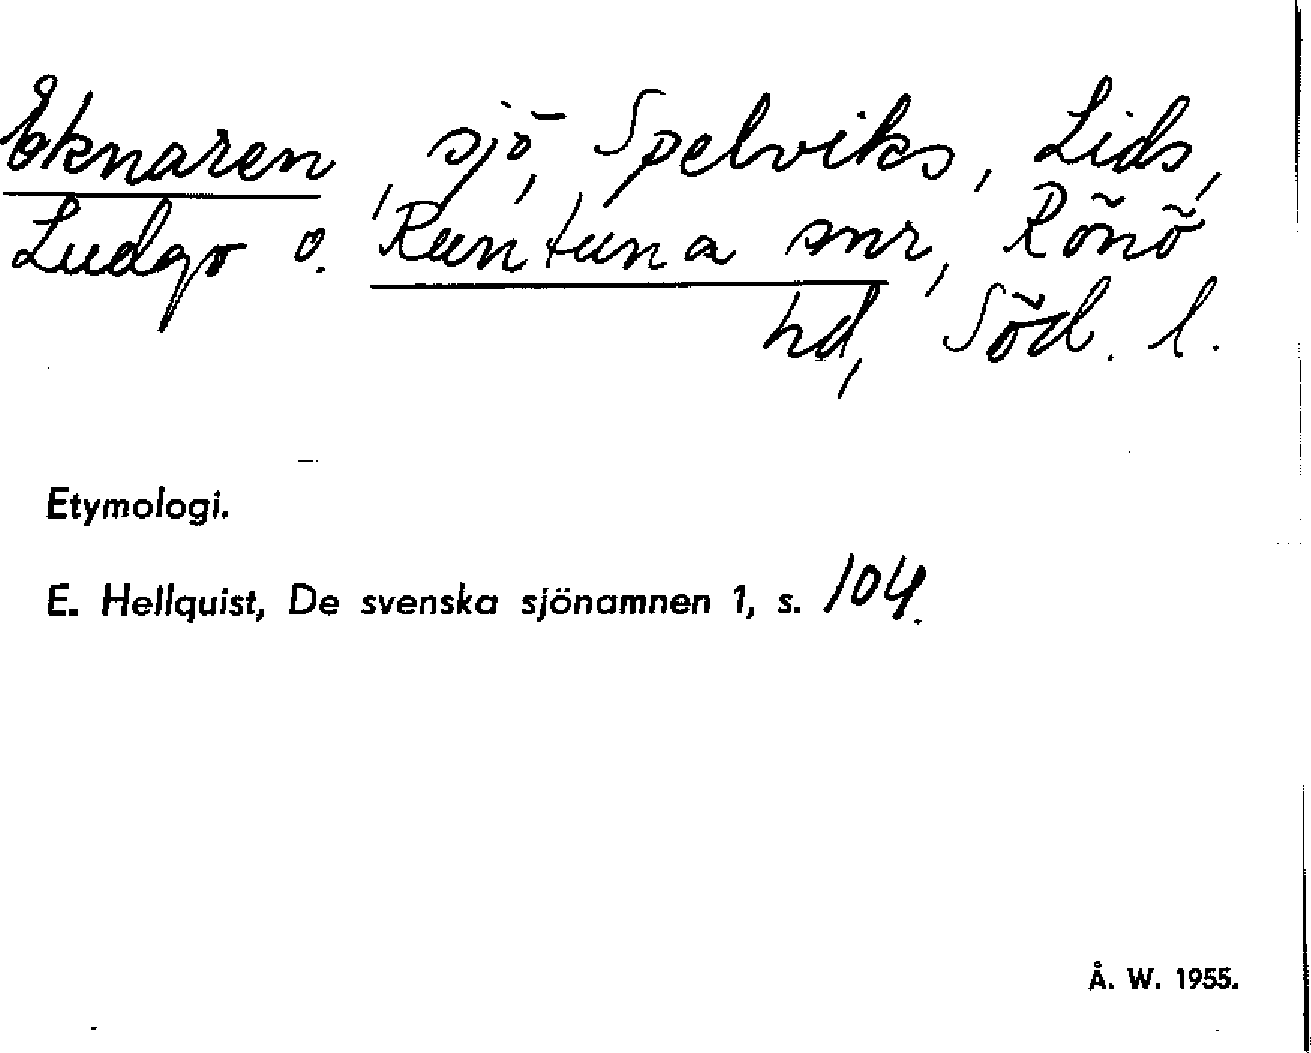 Eknaren, sjö, Spelviks, Lids,
Ludgo o. Runtuna snr, Rönö
hd, Söd. l.
Etymologi.
E. Hellquist, De svenska sjönamnen 1, s. 104.
Å. W. 1955.